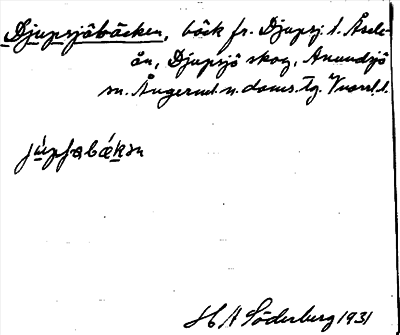 Djupsjöbäcken, bäck fr. Djupsj t. Åsele-
ån, Djupsjö skog, Anundsjö
sn. Ångerml. n. doms. Tg.
júpsabák
H A Söderberg 1931